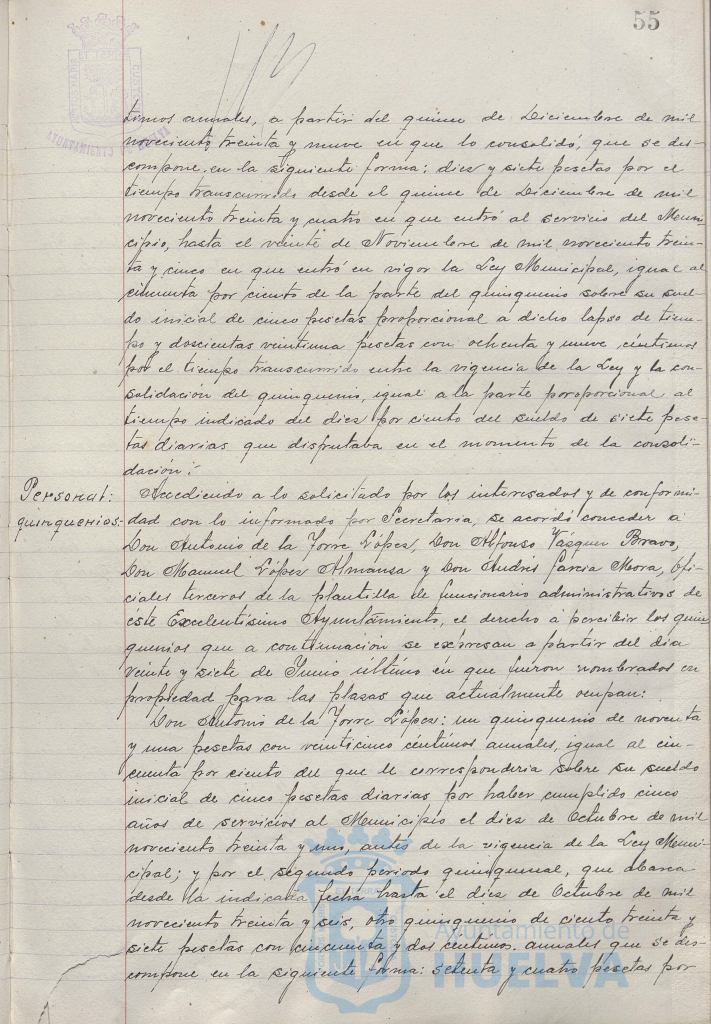 55
timos anuales, a partir del quince de Diciembre de mil
noveciento treinta y nueve en que lo consolidó, que se des-
compone en la siguiente forma: diez y siete pesetas por el
tiempo transcurrido desde el quince de Diciembre de mil
noveciento treinta y cuatro en que entró al servicio del Muni-
cipio, hasta el veinte de Noviembre de mil noveciento trein-
ta y cinco en que entró en vigor la Ley Municipal, igual al
cincuenta por ciento de la parte del quinquenio sobre su suel-
do inicial de cinco pesetas proporcional a dicho lapso de tiem-
po y doscientas veintiuna pesetas con ochenta y nueve céntimos
por el tiempo transcurrido entre la vigencia de la Ley y la con-
solidación del quinquenio, igual a la parte poroporcional al
tiempo indicado del diez por ciento del sueldo de siete pese-
tas diarias que disfrutaba en el momento de la consoli-
dación.-
Personal:
quinquenios.-
Accediendo a lo solicitado por los interesados y de conformi-
dad con lo informado por Secretaría, se acordó conceder a
Don Antonio de la Torre López, Don Alfonso Vázquez Bravo,
Don Manuel López Almansa y Don Andrés García Mora, Ofi-
ciales terceros de la plantilla de funcionario administrativos de
éste Excelentísimo Ayuntamiento, el derecho a percibir los quin-
quenios que a continuación se expresan a partir del día
veinte y siete de Junio último en que fueron nombrados en
propiedad para las plazas que actualmente ocupan:
Don Antonio de la Torre López: un quinquenio de noventa
y una pesetas con veinticinco céntimos anuales, igual al cin-
cuenta por ciento del que le correspondería sobre su sueldo
inicial de cinco pesetas diarias por haber cumplido cinco
años de servicios al Municipio el diez de Octubre de mil
noveciento treinta y uno, antes de la vigencia de la Ley Muni-
cipal; y por el segundo periodo quinquenal, que abarca
desde la indicada fecha hasta el diez de Octubre de mil
noveciento treinta y seis, otro quinquenio de ciento treinta y
siete pesetas con cincuenta y dos céntimos anuales que se des-
compone en la siguiente forma: setenta y cuatro pesetas por
Ayuntamiento de
HUELVA